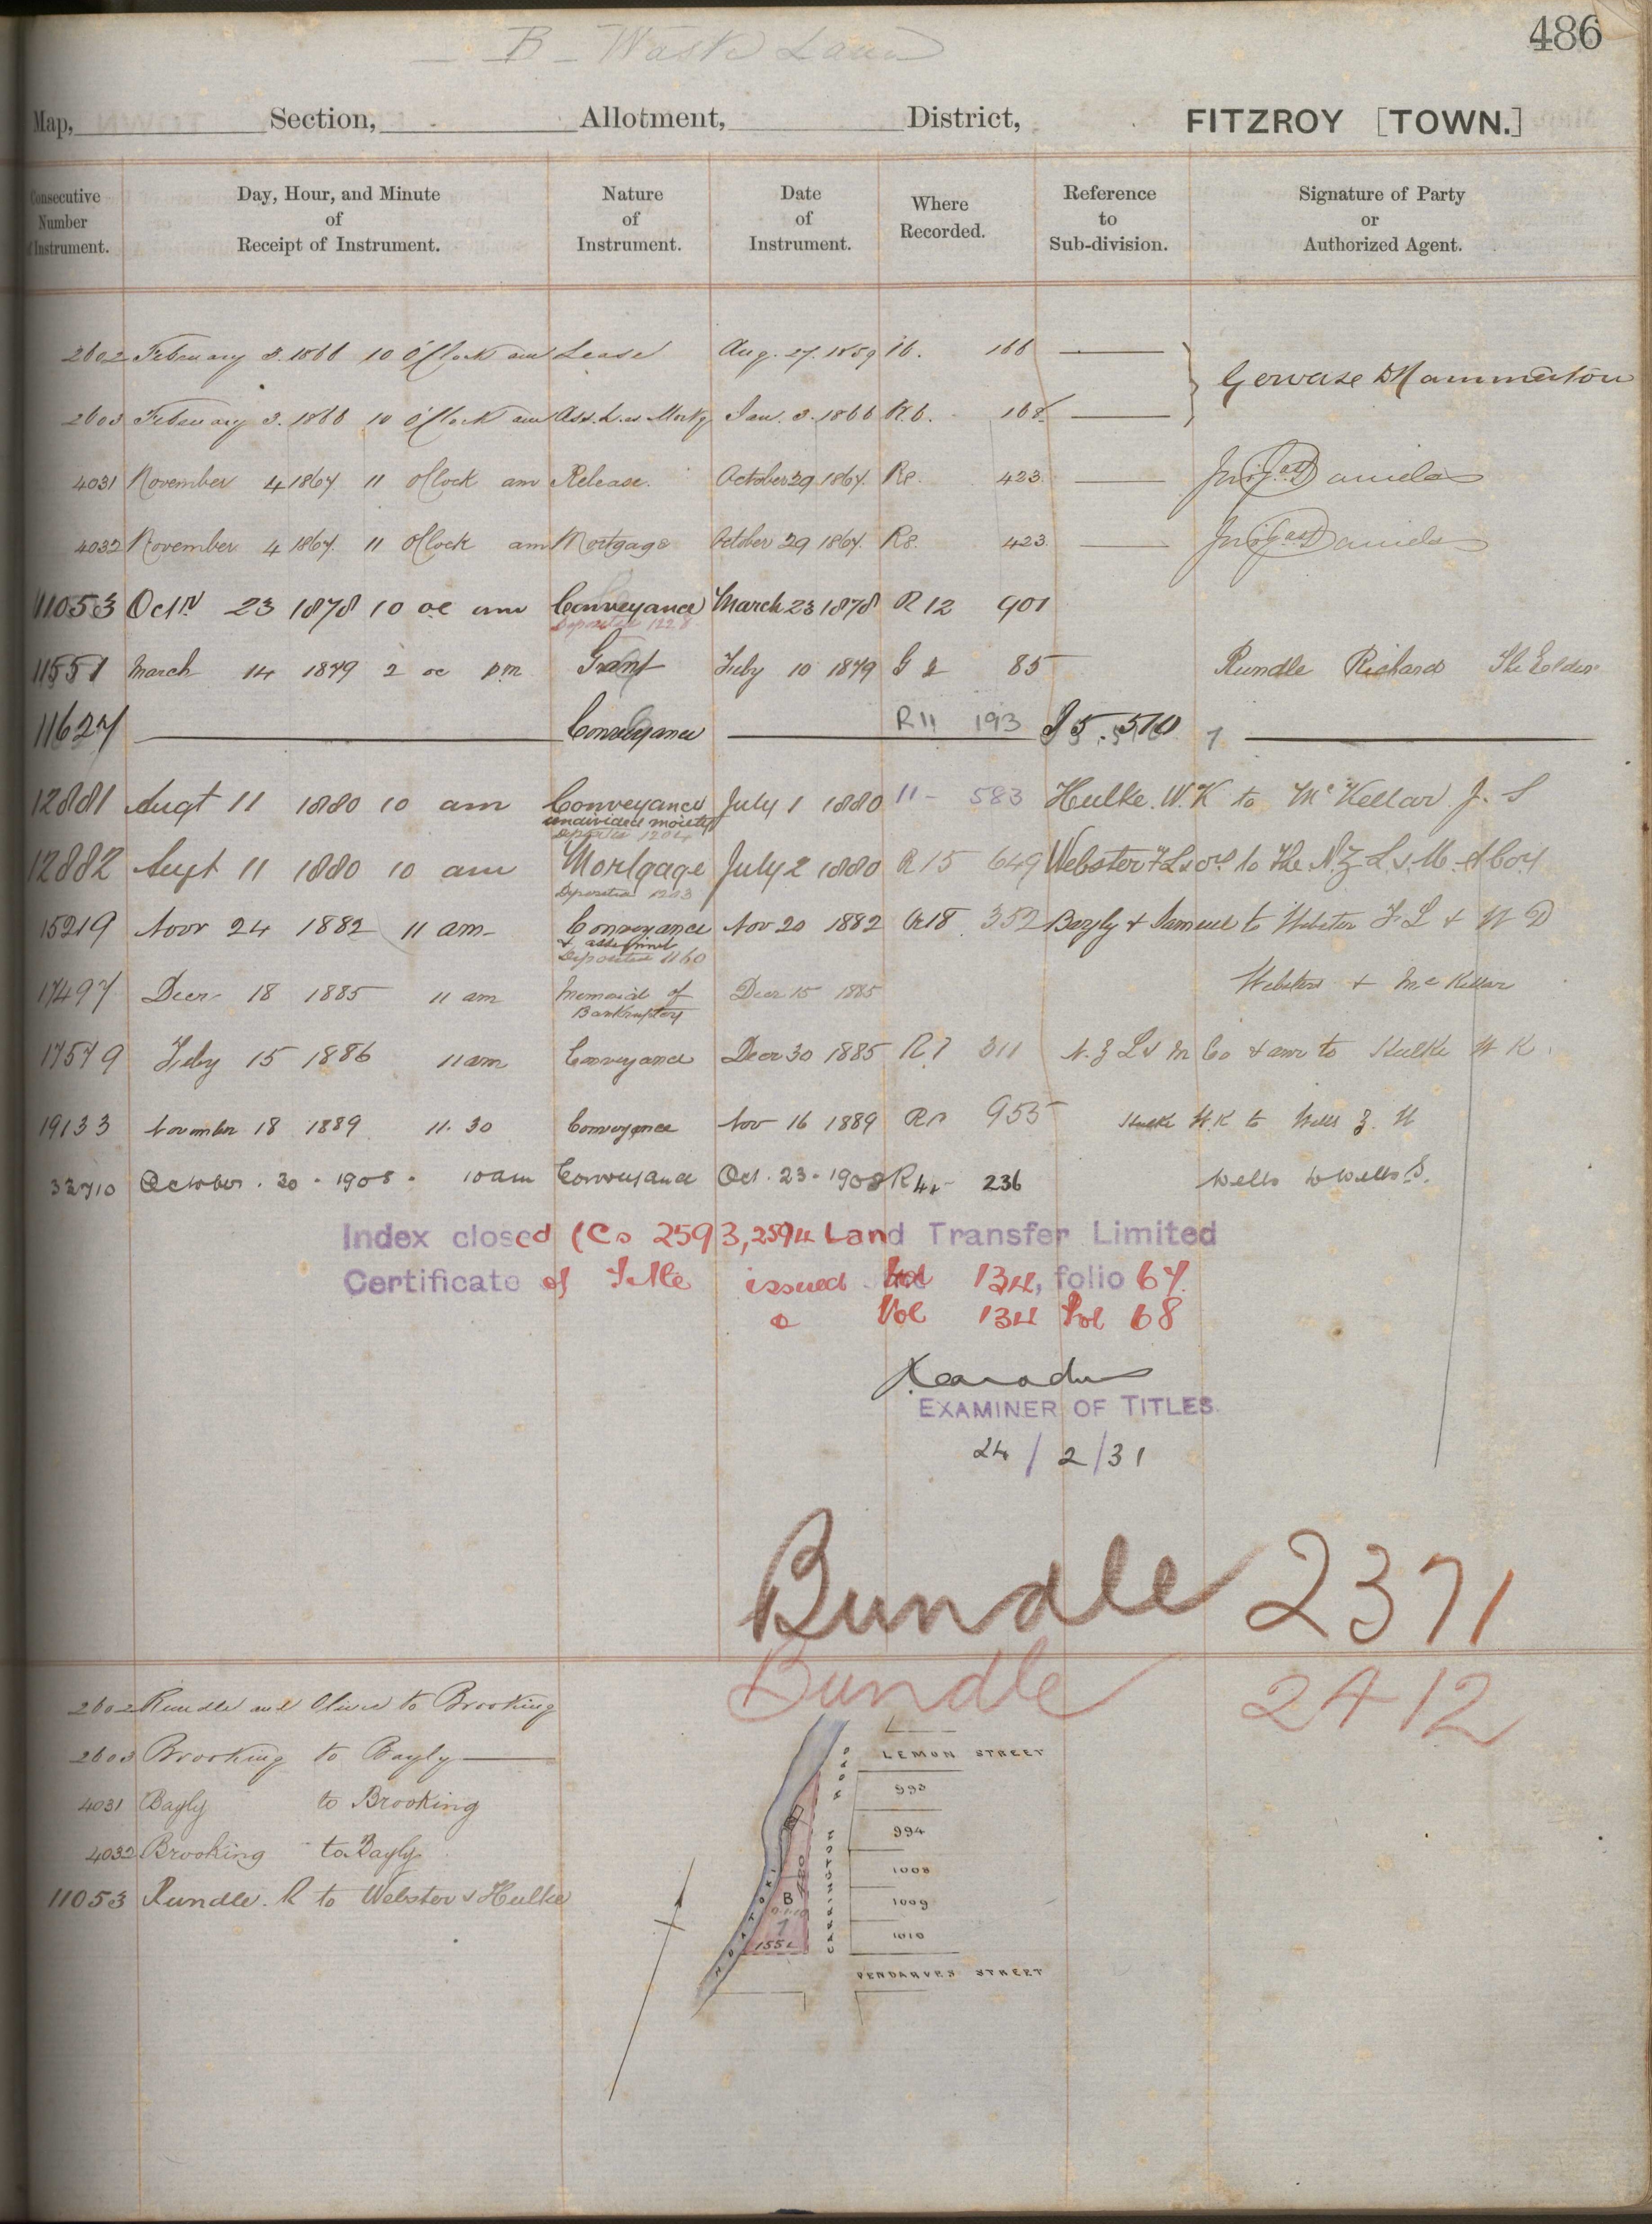 486
B - Waste Land
Map, Section, Allotment, District, FITZROY [TOWN.]
Consecutive Number of Instrument. Day, Hour, and Minute of Receipt of Instrument. Nature of Instrument. Date of Instrument. Where Recorded. Reference to Sub-division. Signature of Party or Authorized Agent.
2602 February 3. 1866 10 O'Clock am Lease Aug. 27. 1859 166
Gervase D Hammerton
2603 February 3. 1866 10 O'Clock am Ass. L. as Mortg Jan. 3. 1866 R.6. 168
4031 November 4 1867 11 oClock am Release. October 29 1867. R8. 423 Daniels
4032 November 4 1867. 11 oClock am Mortgage October 29 1867. R8. 423. Daniels
11053 Octr 23 1878 10 oc am Conveyance March 23 1878 R 12 901
Deposited 1228
11551 March 14 1879 2 oc pm Grant Feby 10 1879 G 2 85 Rundle Richard The Elder
11627 Conveyance R11 193 I 5. 510 7
12881 Augt 11 1880 10 am Conveyance July 1 1880 11 - 583 Hulke. W. K to McKellar J. S
undivided moiety
Deposited 1204
12882 Augt 11 1880 10 am Mortgage July 2 1880 R 15 649 Webster F L & ors to The N. Z L. & M. & Coy
Deposited 1203
15219 Novr 24 1882 11 am - Conveyance Nov 20 1882 R18. 352 Bayly & Samuel to Webster F L & W D
& assignmt
Deposited 1160
17497 Decr 18 1885 11 am Memorial of Bankruptcy Decr 15 1885 Webster & McKellar
17579 Feby 15 1886 11 am Conveyance Decr 30 1885 R7 311 N. Z L & M Co & anr to Hulke W K.
19133 November 18 1889 11. 30 Conveyance Nov 16 1889 955 Hulke W. K to Wells
32710 October. 30 - 1908 - 10 am Conveyance Oct. 23 - 1908 R 236 Wells to Wells S.
Index closed (Cs 2593, 2594 Land Transfer Limited
Certificate of Title issued Vol 134, folio 67.
Vol 134 Fol 68
EXAMINER OF TITLES.
24 / 2 / 31
Bundle 2371
Bundle 2412
2602 Rundle and Oliver to Brooking
2603 Brooking to Bayly
4031 Bayly to Brooking
4032 Brooking to Bayly
11053 Rundle. R to Webster & Hulke
LEMON STREET
993
994
1008
1009
1010
B
0.1.10
1
155
ROAD
PENDARVES STREET